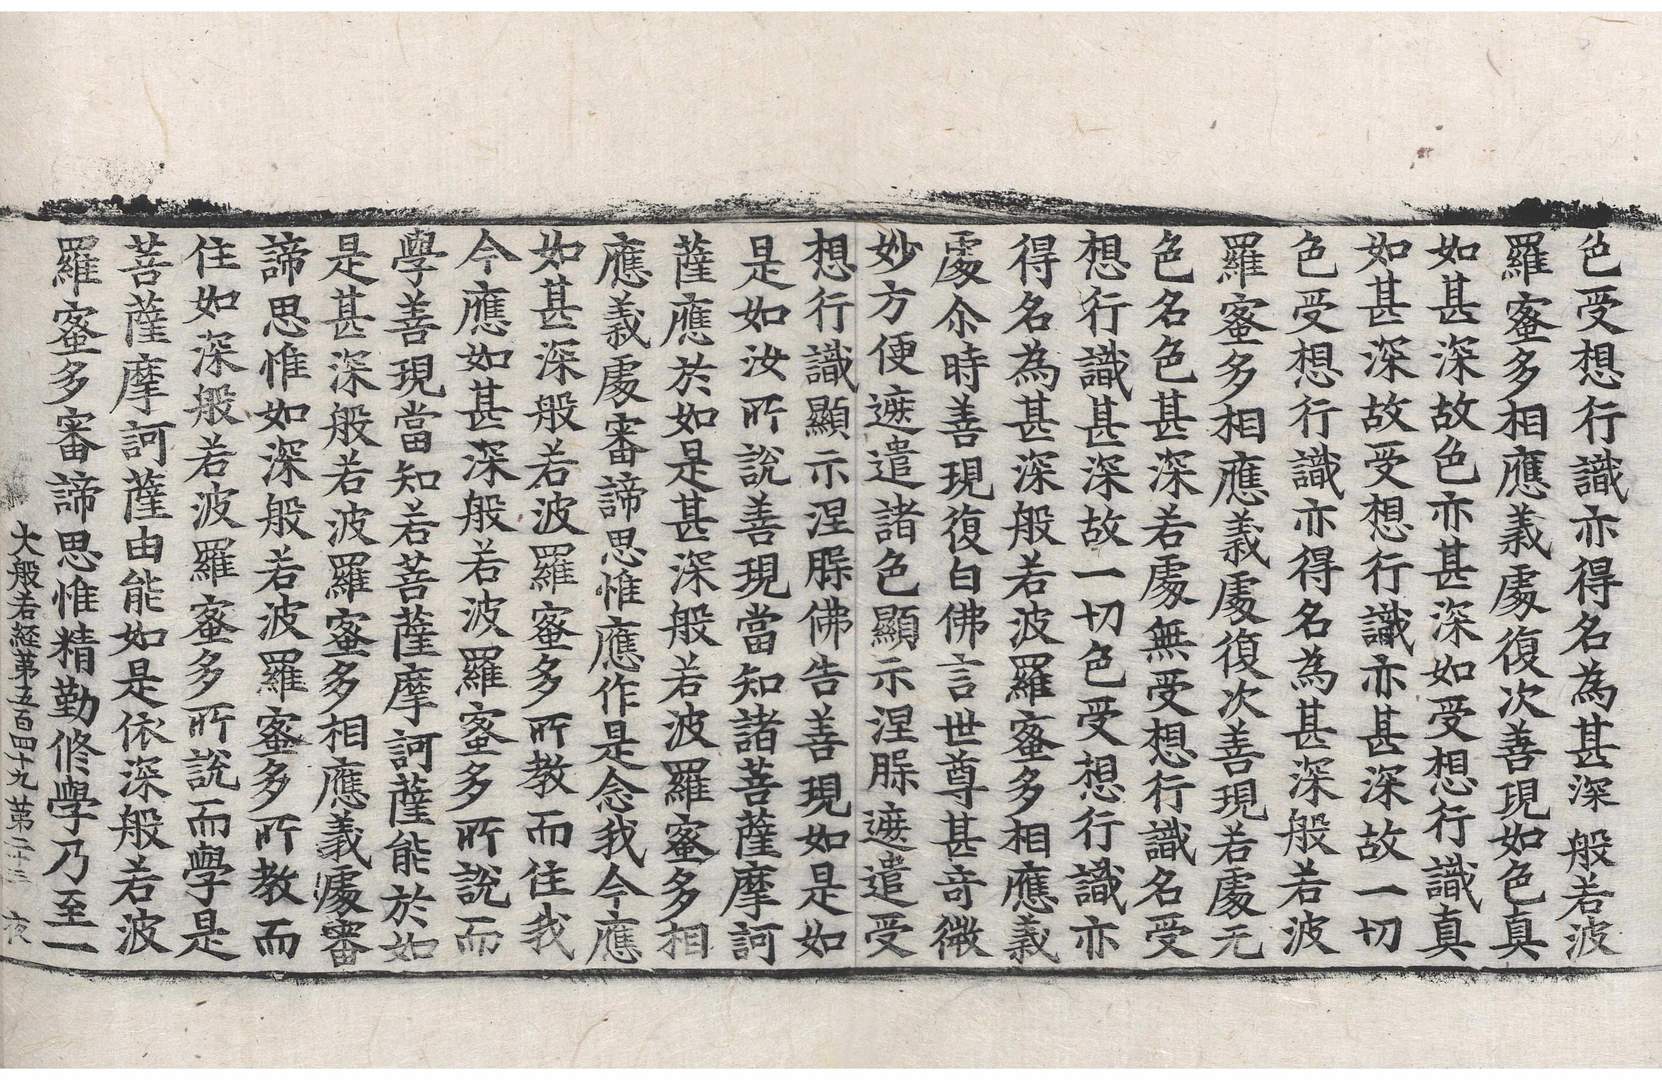 色受想行識亦得名為甚深般若波
羅蜜多相應義處復次善現如色真
如甚深故色亦甚深如受想行識真
如甚深故受想行識亦甚深故一切
色受想行識亦得名為甚深般若波
羅蜜多相應義處復次善現若處无
色名色甚深若處無受想行識名受
想行識甚深故一切色受想行識亦
得名為甚深般若波羅蜜多相應義
處尒時善現復白佛言世尊甚奇微
妙方便遮遣諸色顯示涅槃遮遣受
想行識顯示涅槃佛告善現如是如
是如汝所說善現當知諸菩薩摩訶
薩應於如是甚深般若波羅蜜多相
應義處審諦思惟應作是念我今應
如甚深般若波羅蜜多所教而住我
今應如甚深般若波羅蜜多所說而
學善現當知若菩薩摩訶薩能於如
是甚深般若波羅蜜多相應義處審
諦思惟如深般若波羅蜜多所教而
住如深般若波羅蜜多所說而學是
菩薩摩訶薩由能如是依深般若波
羅蜜多審諦思惟精勤修學乃至一
大般若経苐五百四十九 苐二十三 夜